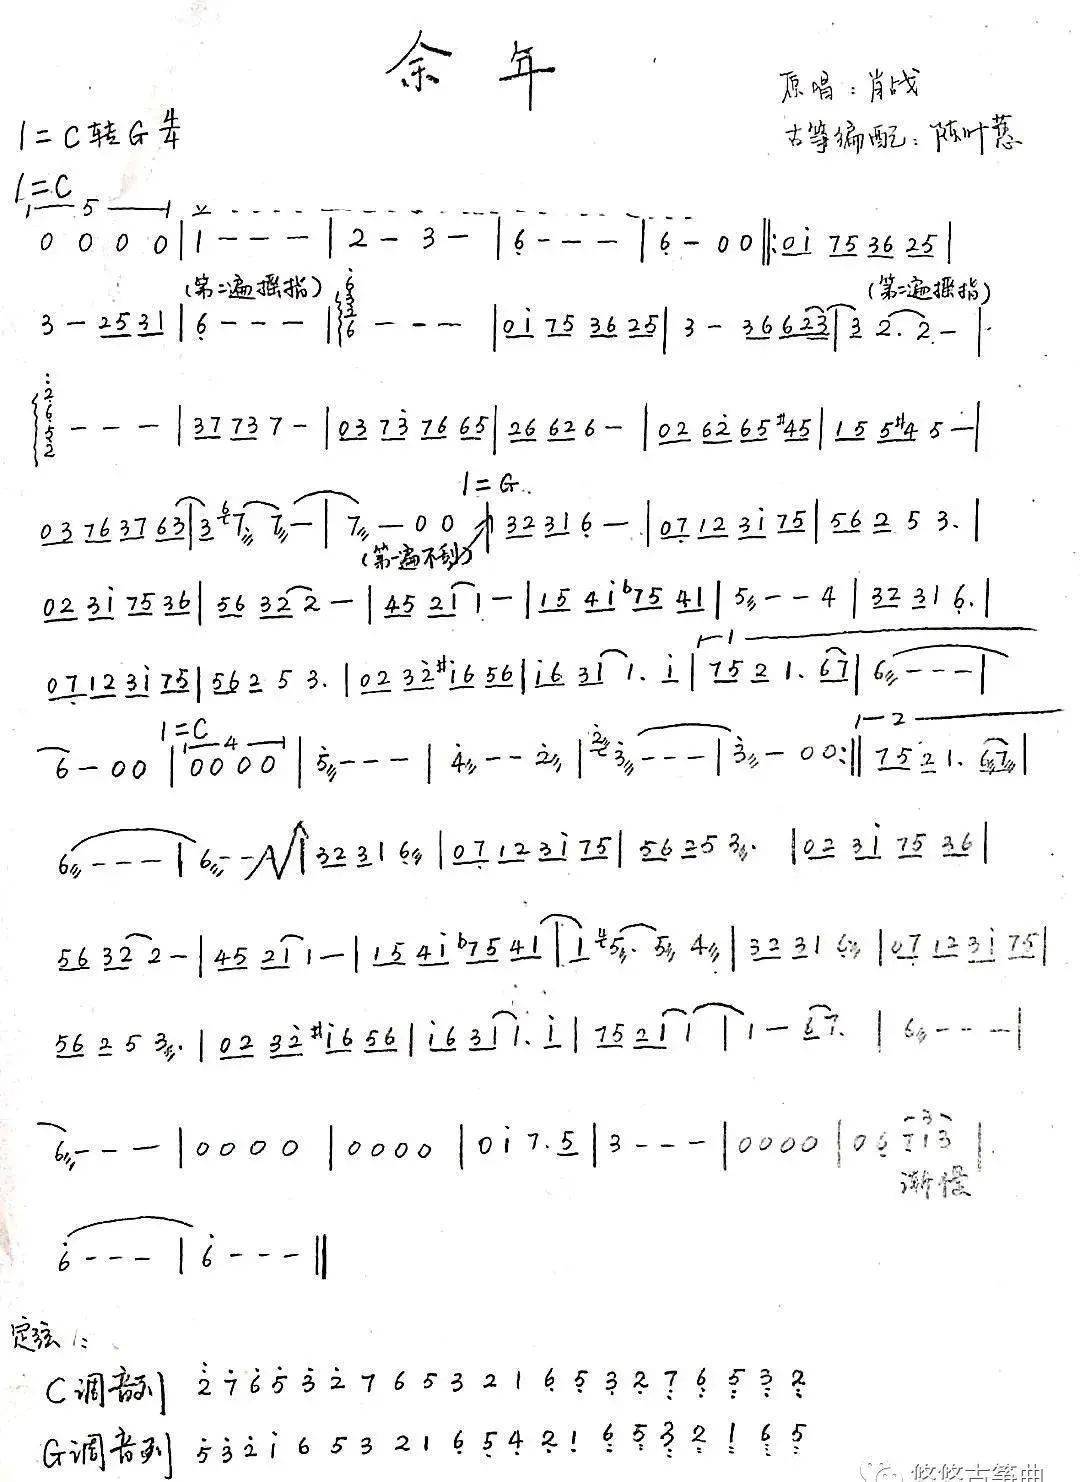 余年
原唱:肖战
1=C转G 4/4
古筝编配:陈叶蕙
1=C
5
0 0 0 0 | 1 - - - | 2 - 3 - | 6̣ - - - | 6̣ - 0 0 ‖: 0i̇ 75 36 25 |
(第二遍摇指) (第二遍摇指)
3 - 25 31 | 6̣ - - - | 6 - - - | 0i̇ 75 36 25 | 3 - 36 623 | 3 2. 2 - |
- - - | 37 73 7 - | 03 73̇ 76 65 | 26 62 6 - | 02 62̇ 65 #45 | 15 5#4 5 - |
1=G
03 76 37 63 | 3 7 7 - | 7 - 0 0 | 32 31 6̣ - | 07̣ 12 3i̇ 75 | 56 2 5 3. |
(第一遍不刮)
02 3i̇ 75 36 | 56 32 2 - | 45 21 1 - | 15 4i̇ b75 41 | 5 - - 4 | 32 31 6̣. |
1
07̣ 12 3i̇ 75 | 56 2 5 3. | 02 32̇ #i̇6 56 | i̇6 31 1. i̇ | 75 2 1. 67 | 6 - - - |
1=C
4 2
6 - 0 0 | 0 0 0 0 | 5̇ - - - | 4̇ - - 2̇ | 3̇ - - - | 3̇ - 0 0 :‖ 75 2 1. 67 |
6 - - - | 6 - - | 32 31 6̣ | 07̣ 12 3i̇ 75 | 56 25 3. | 02 3i̇ 75 36 |
56 32 2 - | 45 21 1 - | 15 4i̇ b75 41 | 1 5. 5 4 | 32 31 6̣ | 07̣ 12 3i̇ 75 |
56 2 5 3. | 02 32̇ #i̇6 56 | i̇6 31 1. i̇ | 75 21 1 | 1 - 67. | 6 - - - |
6 - - - | 0 0 0 0 | 0 0 0 0 | 0 i̇ 7. 5 | 3 - - - | 0 0 0 0 | 0 6̣ 7̣13 |
3
渐慢
6̇ - - - | 6̇ - - - ‖
定弦:
C调音列 2̈ 7̇ 6̇ 5̇ 3̇ 2̇ 7 6 5 3 2 1 6̣ 5̣ 3̣ 2̣ 7̤ 6̤ 5̤ 3̤ 2̤
G调音列 5̇ 3̇ 2̇ i̇ 6 5 3 2 1 6̣ 5̣ 4̣ 2̣ 1̣ 6̤ 5̤ 3̤ 2̤ 1̤ 6 5
悠悠古筝曲